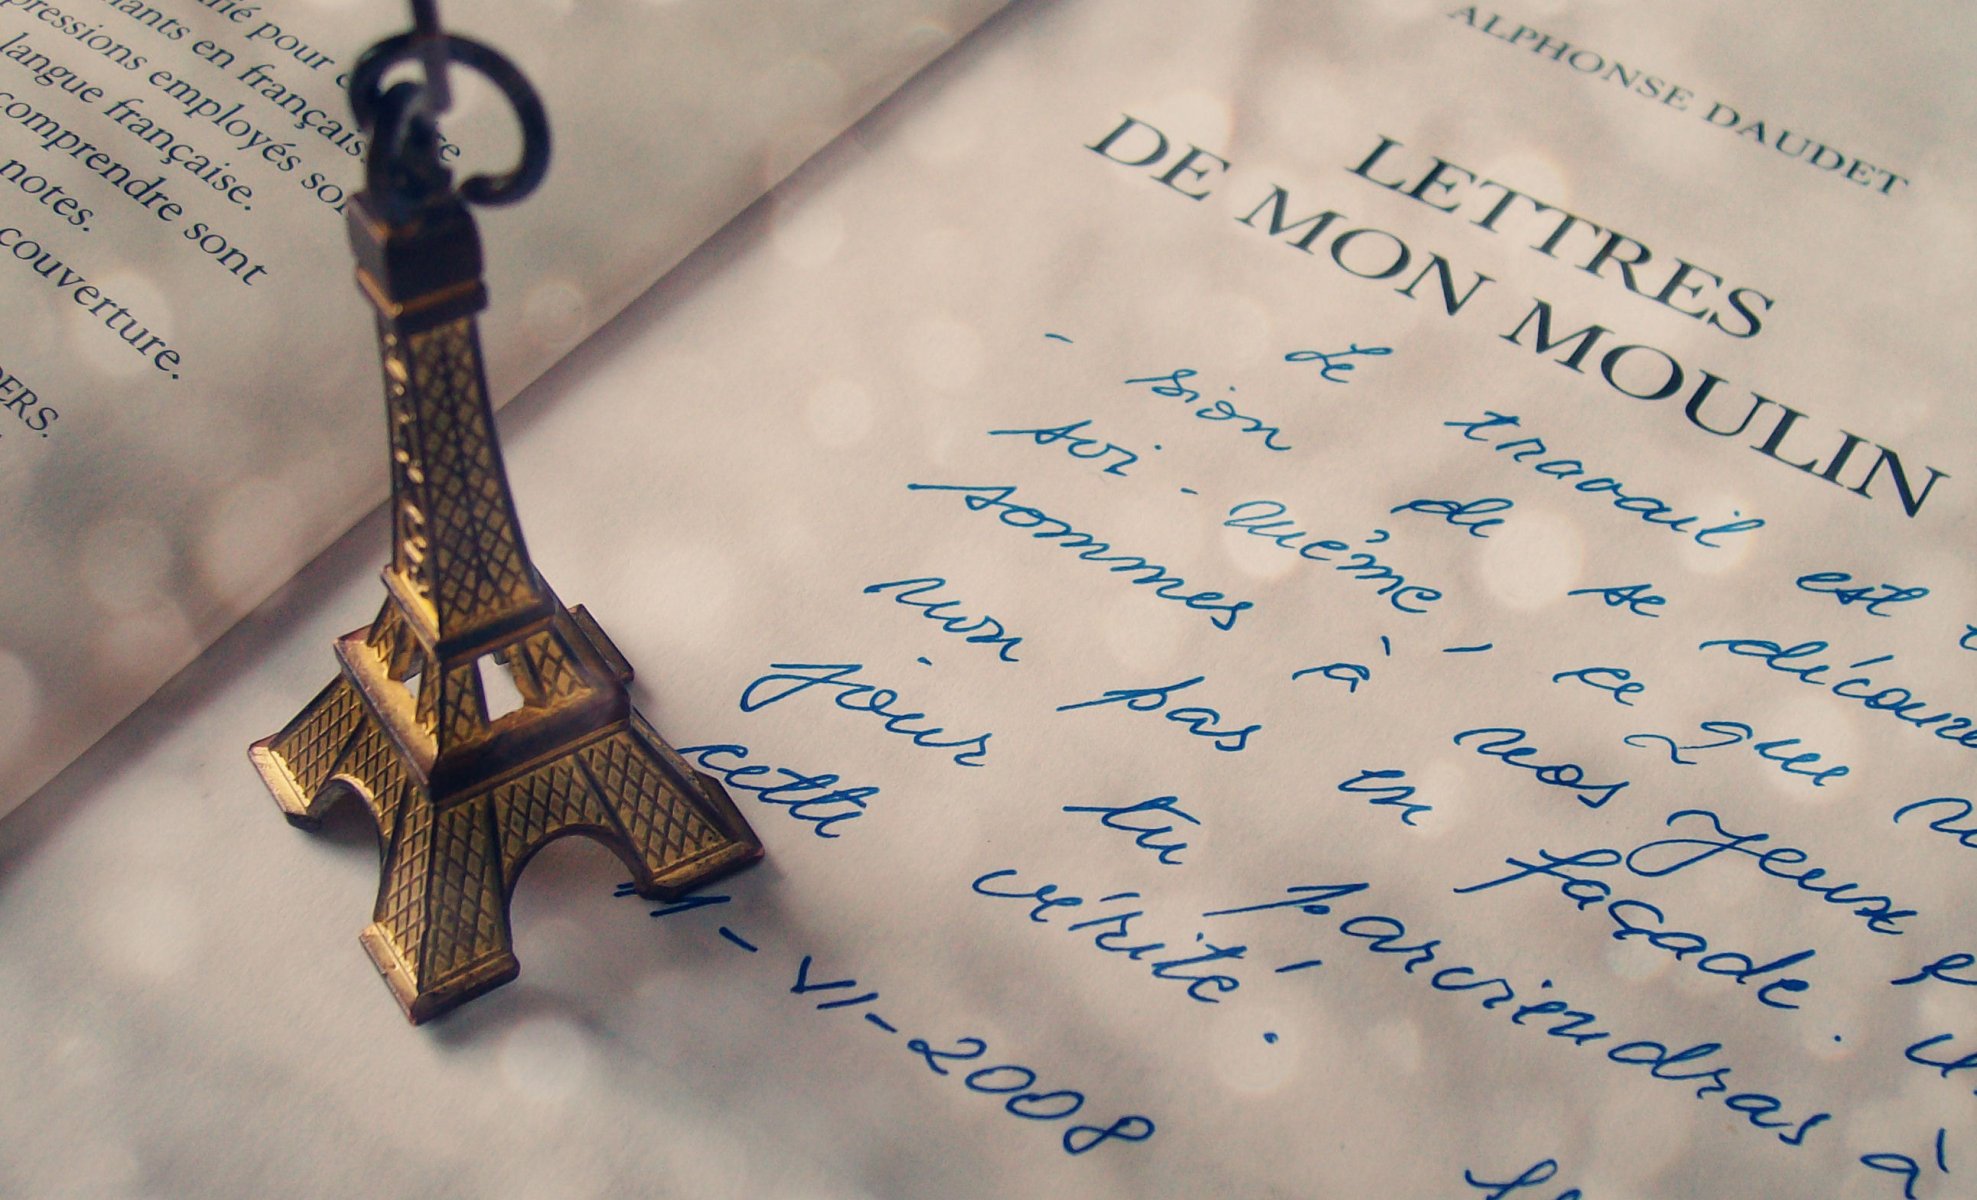 pour
en français.
pressions employés
langue française.
comprendre sont
notes.
couverture.
ALPHONSE DAUDET
LETTRES
DE MON MOULIN
Le travail est
- sion de se découvr
soi-même, ce que
sommes à nos yeux
non pas en façade.
jour tu parviendras à
cette vérité.
VII-2008